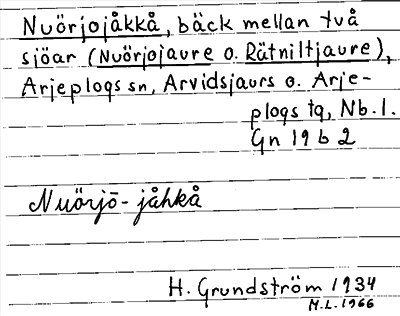 Nuörjojåkkå, bäck mellan två
sjöar (Nuörjojaure o. Rätniltjaure),
Arjeplogs sn, Arvidsjaurs o. Arje-
plogs tg, Nb.l.
Gn 19 b 2
Nuörjō-jåhkå
H. Grundström 1934
M.L. 1966